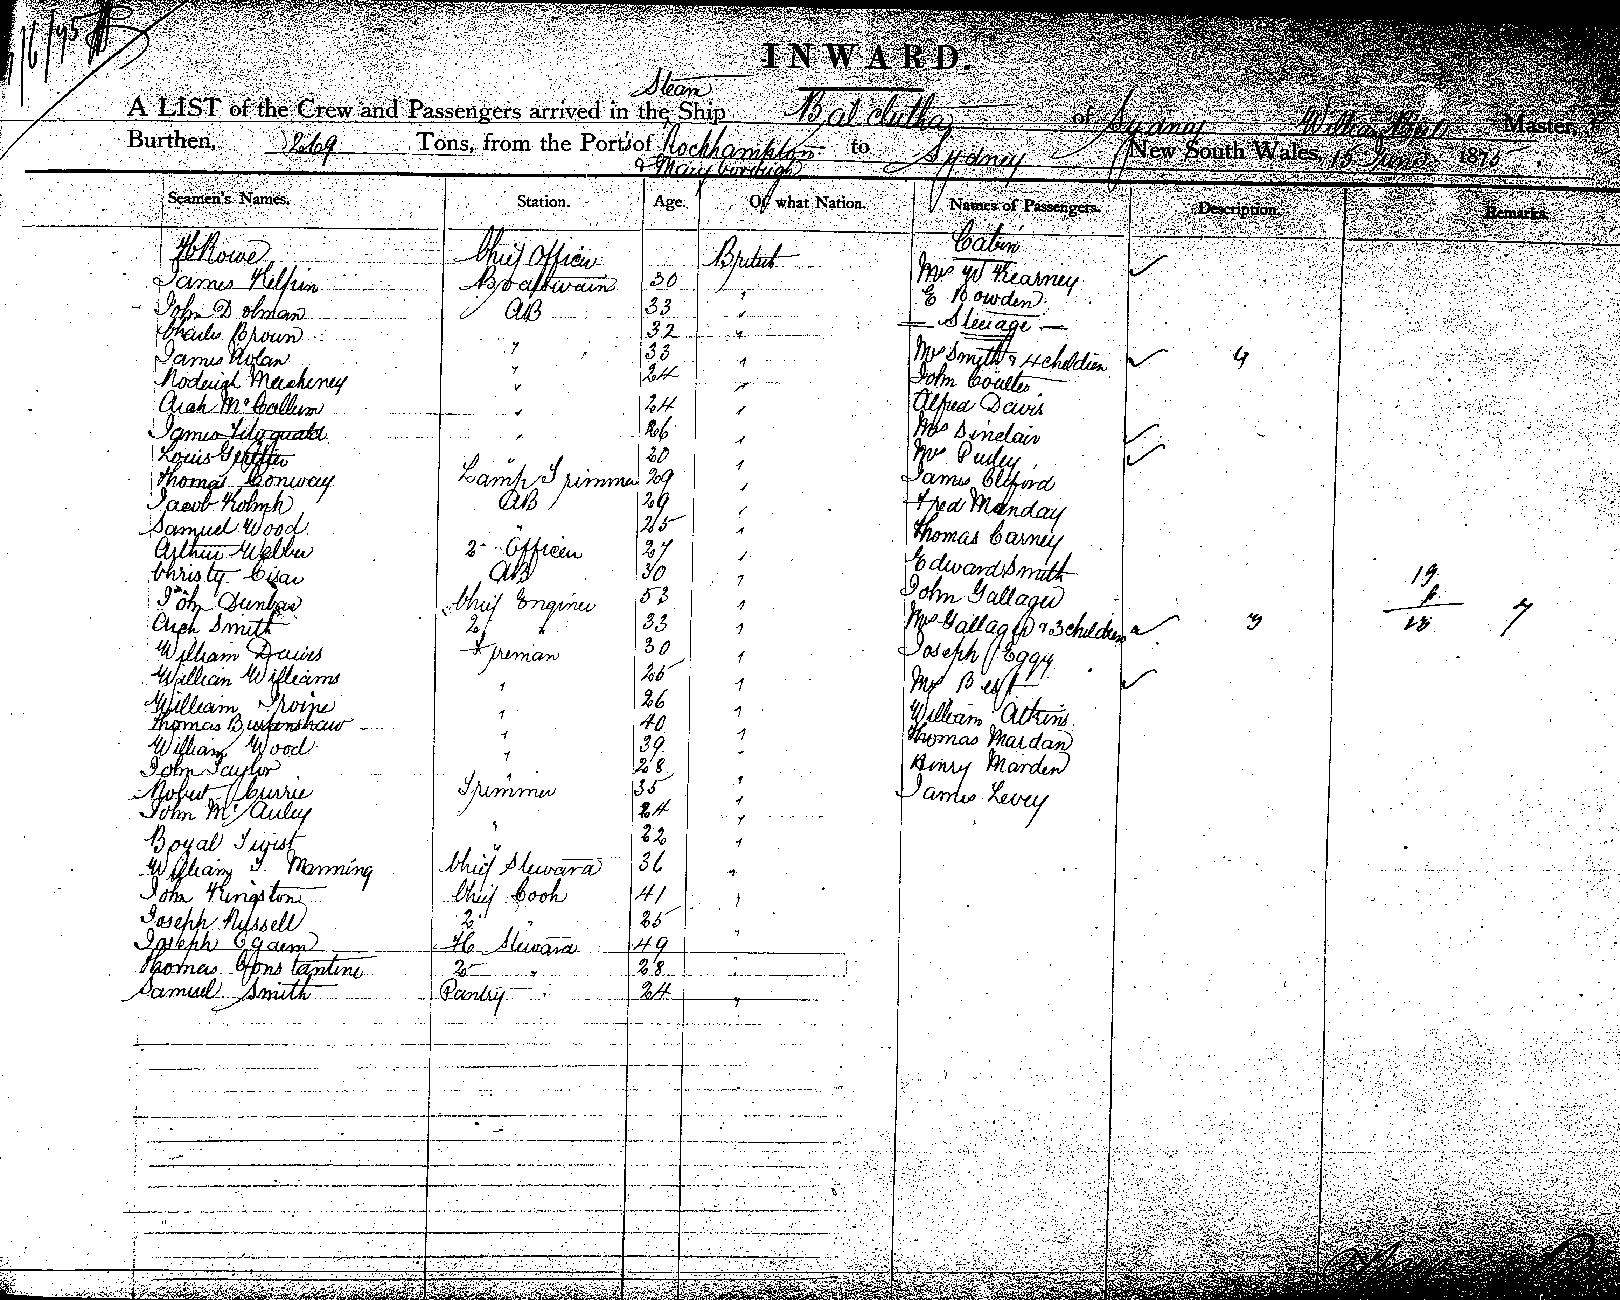 16/6/75
INWARD.
Steam
A LIST of the Crew and Passengers arrived in the Ship Balclutha of Sydney William Master,
Burthen, 269 Tons, from the Ports of Rockhampton to Sydney New South Wales, 15 June 1875.
& Maryborough
Seamen's Names. Station. Age. Of what Nation. Names of Passengers. Description. Remarks.
H Rowe Chief Officer British Cabin
James Kelpin Boatswain 30 " Mrs W Kearney
John Dolman AB 33 " E Bowden
Charles Brown " 32 " — Steerage —
James Nolan " 33 " Mrs Smith & 4 children 4
Roderigh 24 " John Coulter
Arch McCallum " 24 " Alfred Davis
James Fitzgerald " 26 " Mrs Sinclair
Louis " 20 " Mrs
Thomas Conway Lamp Trimmer 29 " James Cliford
Jacob AB 29 " Fred Manday
Samuel Wood " 25 " Thomas Carney
Arthur Webber 2 Officer 27 " Edward Smith
Christy AB 30 " John Gallager 19
John Dunbar Chief Enginer 53 " Mrs Gallager & 3 children 3 18 7
Arch Smith 2 " 33 " Joseph Eggy
William Davis Fireman 30 " Mrs Best
William Williams " 25 " William Atkins
William Irvine " 26 " Thomas Mardan
Thomas Burtenshaw " 40 " Henry Marden
William Wood " 39 " James Levey
John Taylor " 28 "
Robert Currie Trimmer 35 "
John McAuley " 24 "
Boyal Twist " 22 "
William T. Manning Chief Steward 36 "
John Kingston Chief Cook 41 "
Joseph Russell 2 " 25 "
Joseph Steward 49 "
Thomas Constantine 2 " 28 "
Samuel Smith Pantry " 24 "